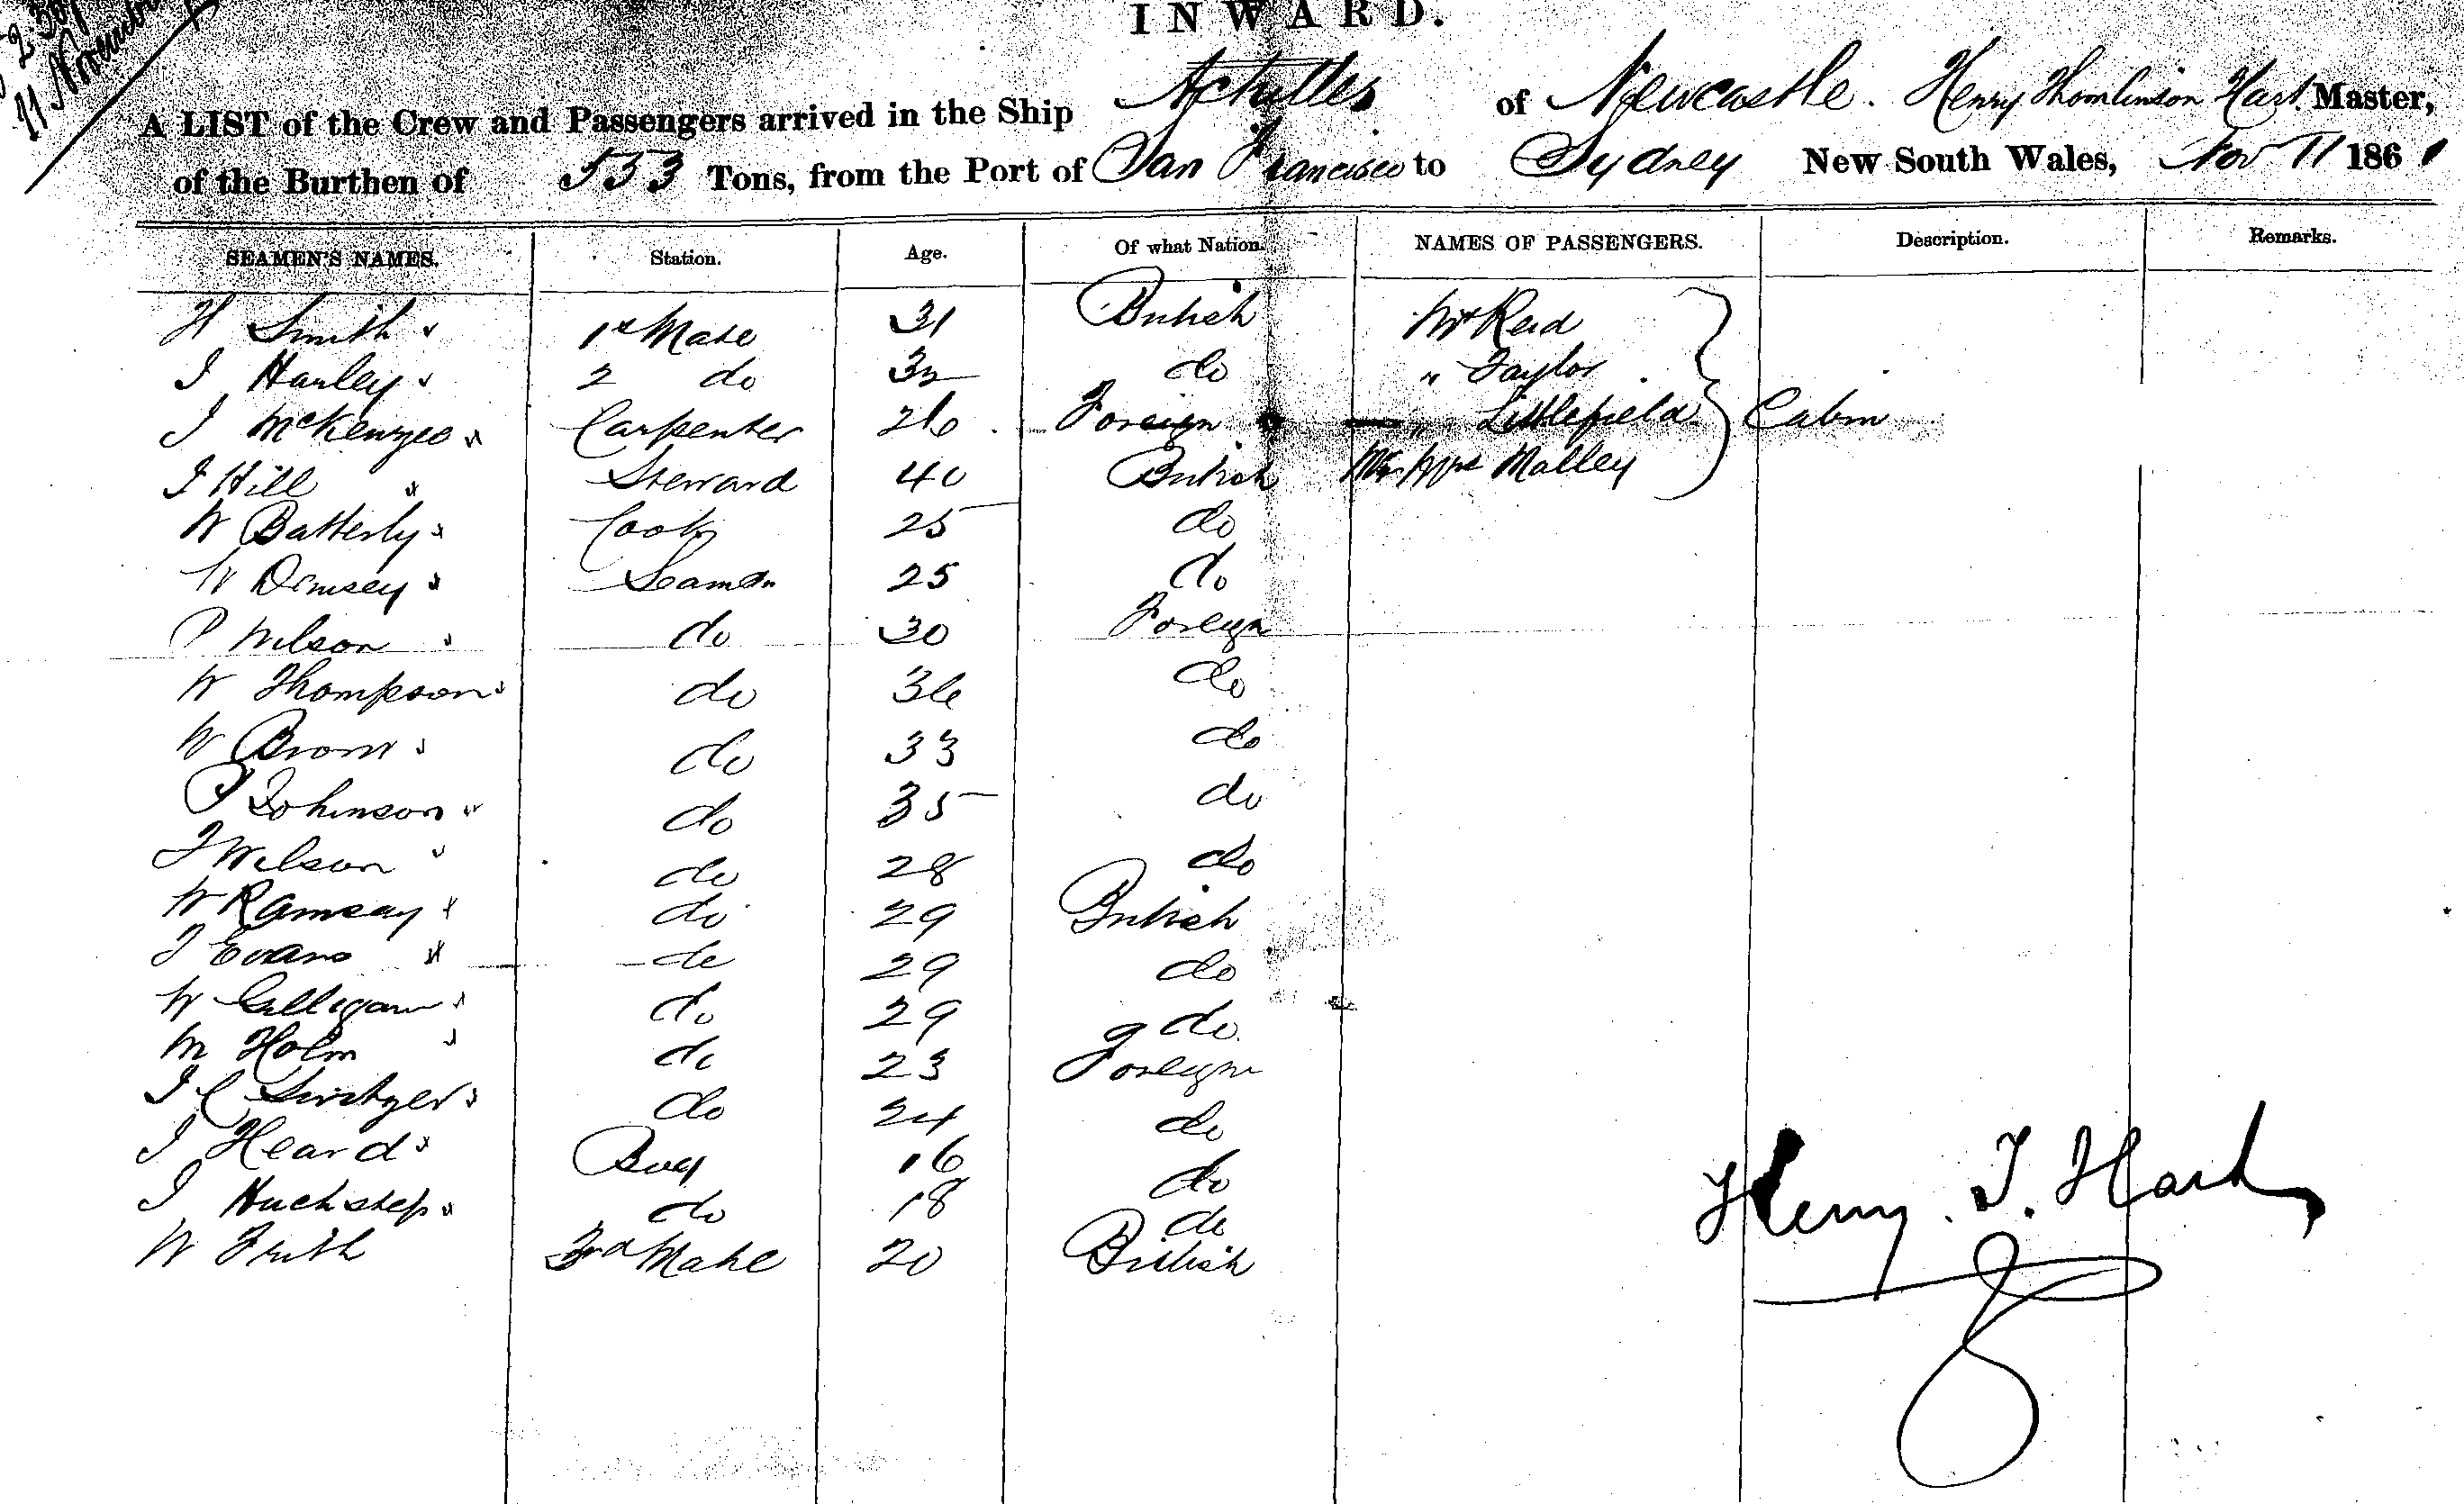 11 November
INWARD.
A LIST of the Crew and Passengers arrived in the Ship Achilles of Newcastle. Henry Thomlinson Hart. Master,
of the Burthen of 553 Tons, from the Port of San Francisco to Sydney New South Wales, Nov 11 1861
SEAMEN'S NAMES. Station. Age. Of what Nation. NAMES OF PASSENGERS. Description. Remarks.
H Smith 1st Mate 31 British Mr Reid
J Hanley 2 do 32 do " Taylor
J McKenzee Carpenter 26 Foreign " Littlefield Cabin
J Hill Steward 40 British Mr & Mrs Malley
W Batterly Cook 25 do
W Dimsey Seaman 25 do
P Wilson do 30 Foreign
W Thompson do 36 do
W Brown do 33 do
P Johnson do 35 do
J Wilson do 28 do
W Ramsay do 29 British
J Evans do 29 do
W Gilligan do 29 do
M Holm do 23 Foreign
J C Switzer do 24 do
J Heard Boy 16 do
J Huckstep do 18 do
W Frith 3rd Mate 20 British
Henry. T. Hart